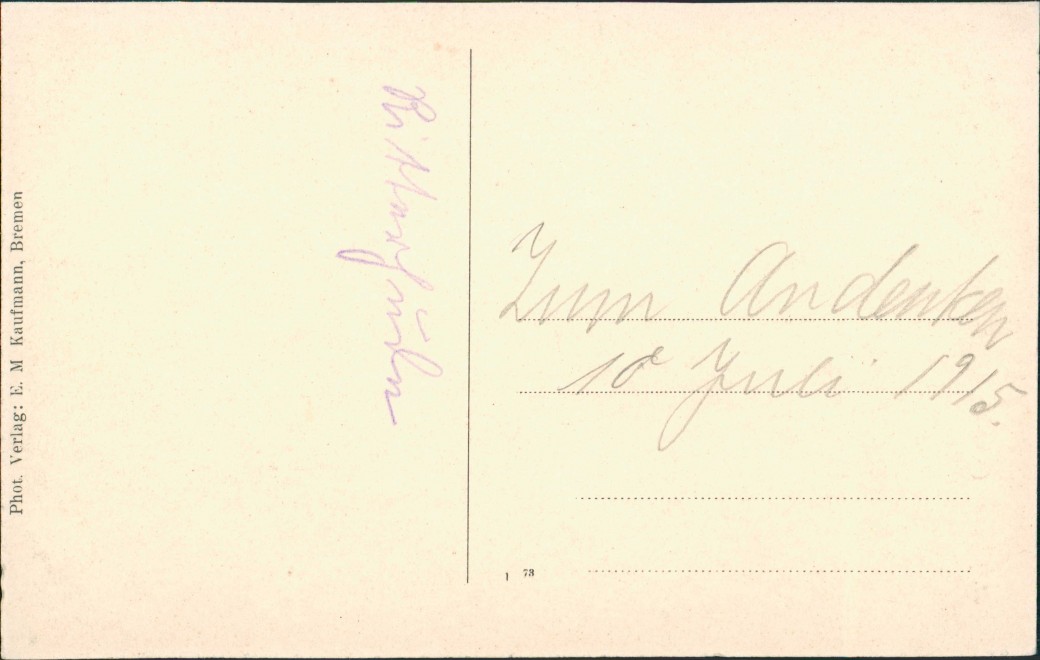 Phot. Verlag: E. M Kaufmann, Bremen
Zum Andenken
10 Juli 1915.
1 73